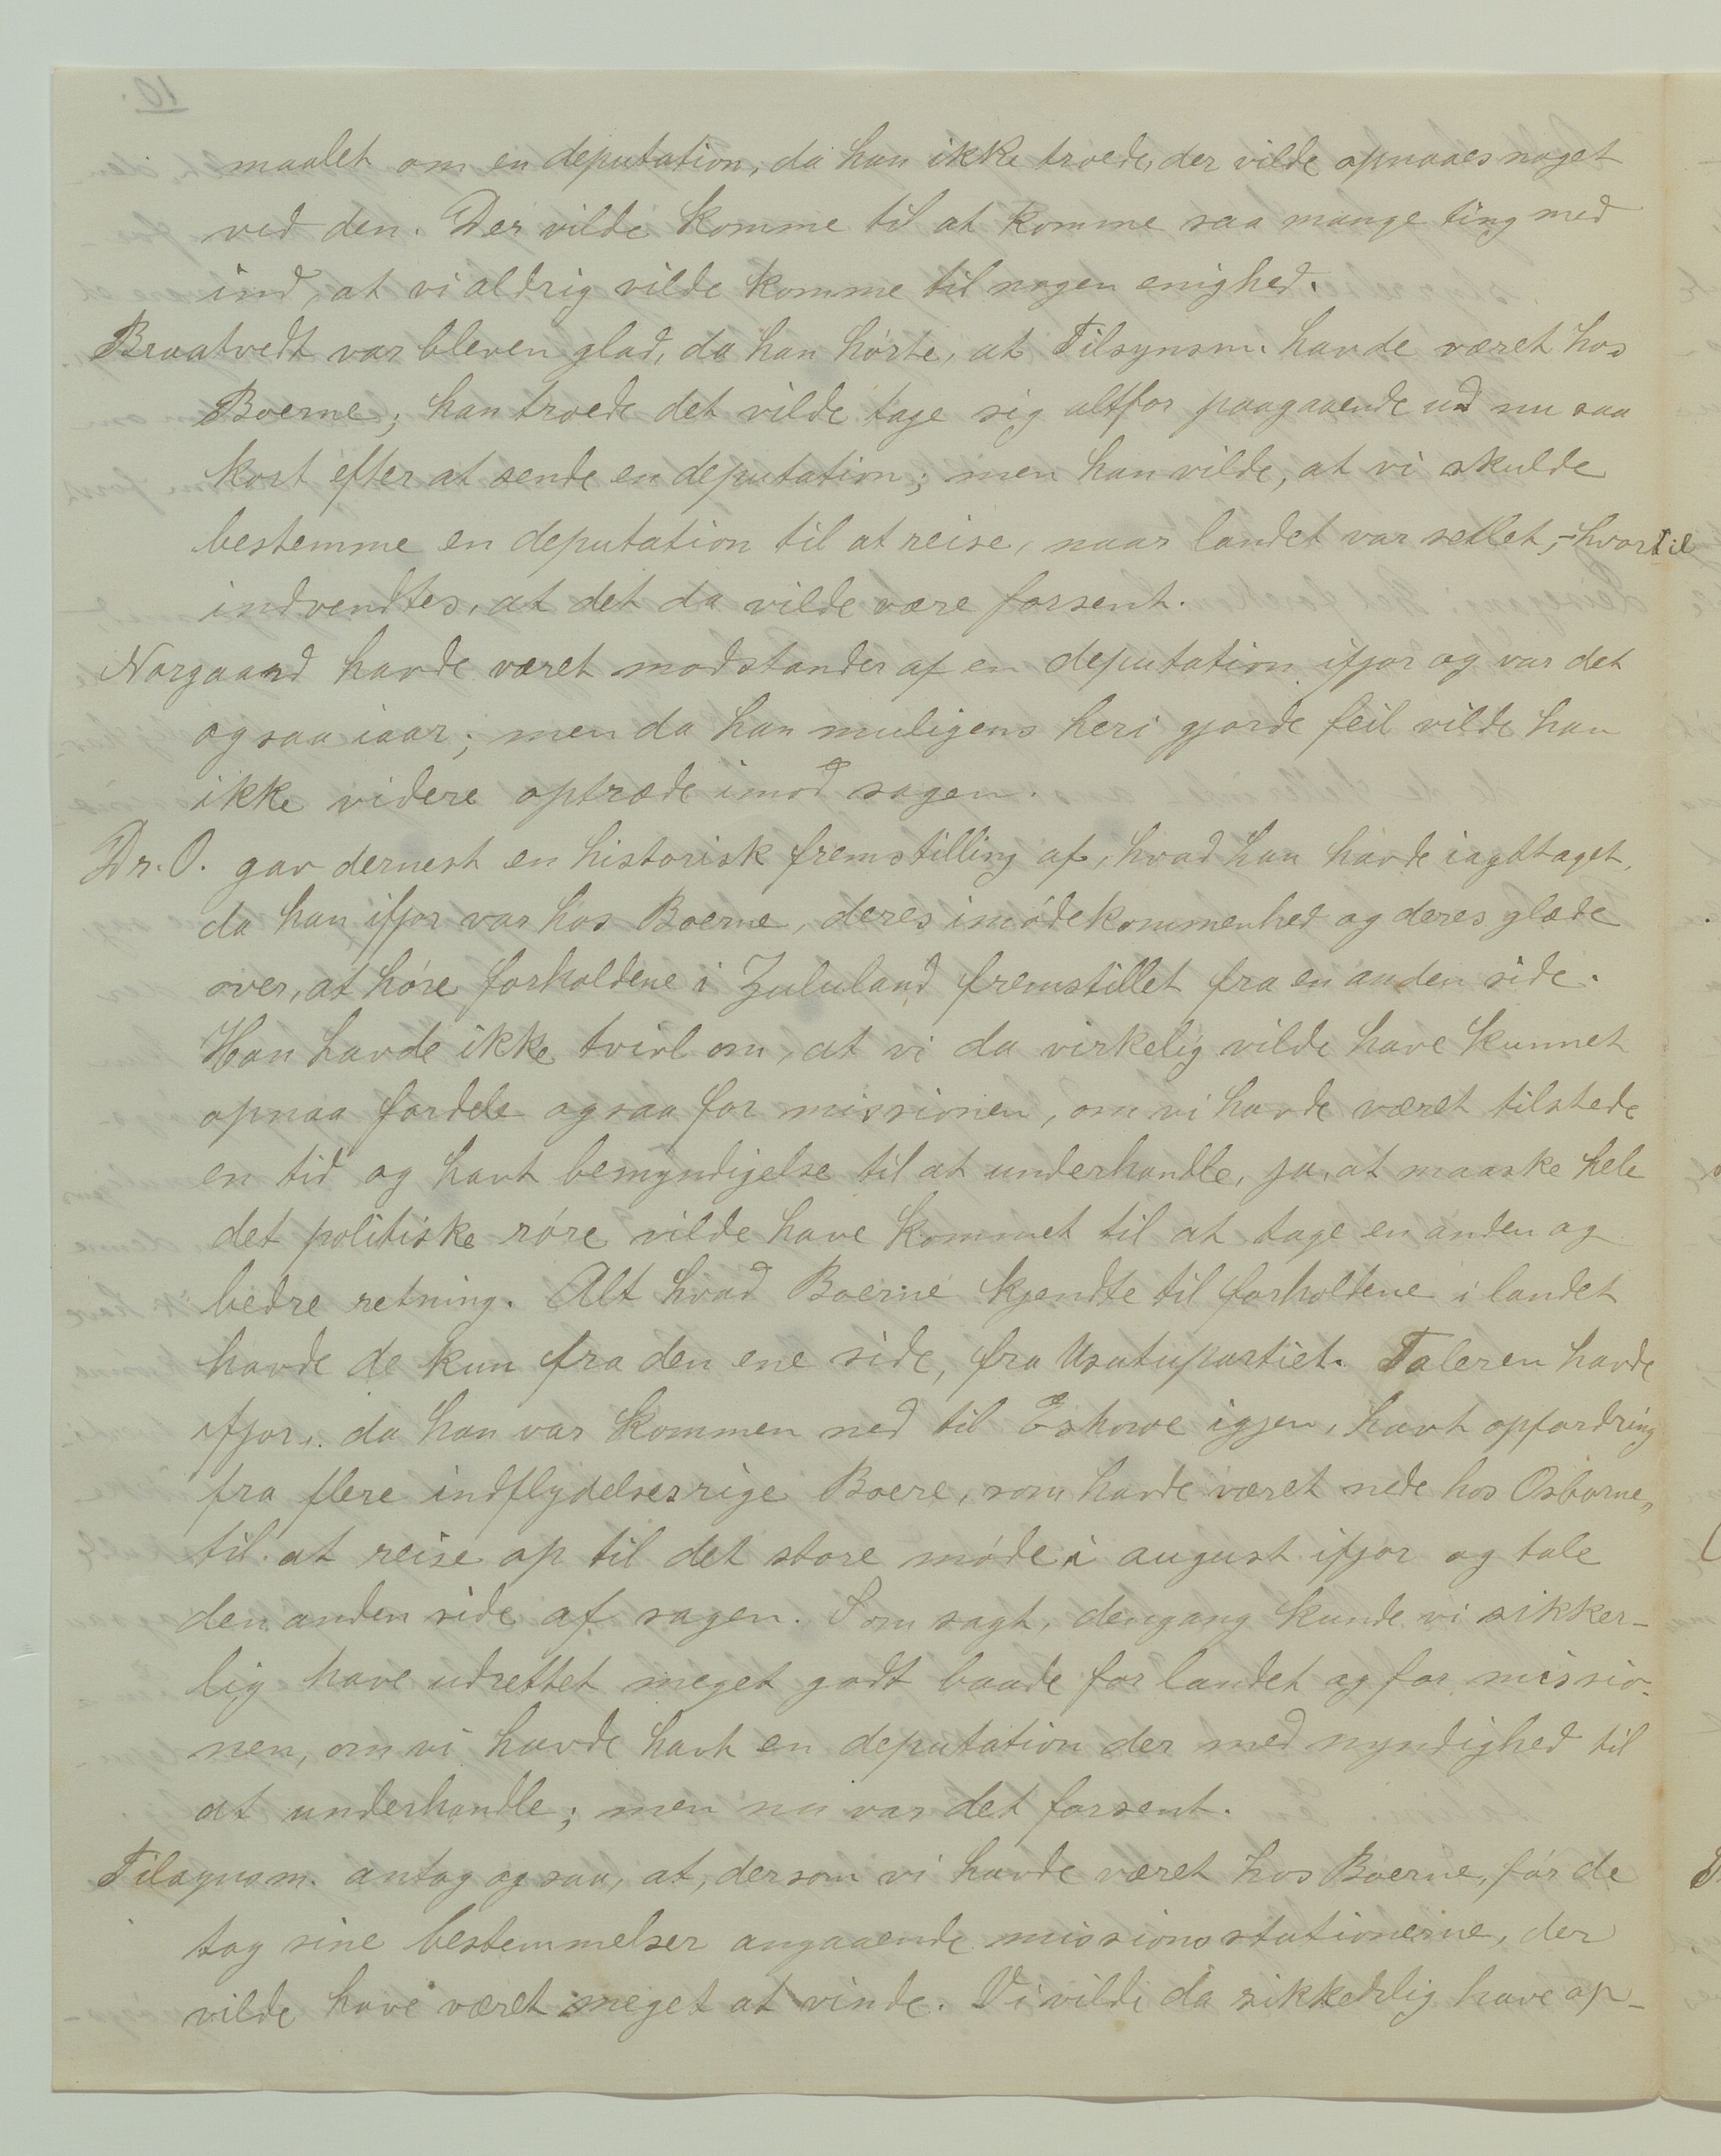 maalet om en deputation, da han ikke troede, der vilde opnaaes noget
ved den. Der vilde komme til at komme saa mange ting med
ind, at vi aldrig vilde komme til nogen enighed.
Braatvedt var bleven glad, da han hørte, at Tilsynsm. havde været hos
Boerne; han troede det vilde tage sig altfor paagaaende ud nu saa
kort efter at sende en deputation; men han vilde, at vi skulde
bestemme en deputation til at reise, naar landet var setlet, - hvortil
indvendtes, at det da vilde være forsent.
Norgaard havde været modstander af en deputation ifjor og var det
ogsaa iaar; men da han muligens heri gjorde feil vilde han
ikke videre optræde imod sagen.
Dr. O. gav dernest en historisk fremstilling af, hvad han havde iagttaget,
da han ifjor var hos Boerne, deres imødekommenhed og deres glæde
over, at høre forholdene i Zululand fremstillet fra en anden side.
Han havde ikke tvivl om, at vi da virkelig vilde have kunnet
opnaa fordele ogsaa for missionen, om vi havde været tilstede
en tid og havt bemyndigelse til at underhandle, ja, at maaske hele
det politiske røre vilde have kommet til at tage en anden og
bedre retning. Alt hvad Boerne kjendte til forholdene i landet
havde de kun fra den ene side, fra Usutupartiet. Taleren havde
ifjor, da han var kommen ned til Eshowe igjen, havt opfordring
fra flere indflydelsesrige Boere, som havde været nede hos Osborne,
til at reise op til det store møde i august ifjor og tale
den anden side af sagen. Som sagt, dengang kunde vi sikker-
lig have udrettet meget godt baade for landet og for missio-
nen, om vi havde havt en deputation der med myndighed til
at underhandle; men nu var det forsent.
Tilsynsm. antog ogsaa, at, dersom vi havde været hos Boerne, før de
tog sine bestemmelser angaaende missionsstationerne, der
vilde have været meget at vinde. Vi vilde da sikkerlig have op-